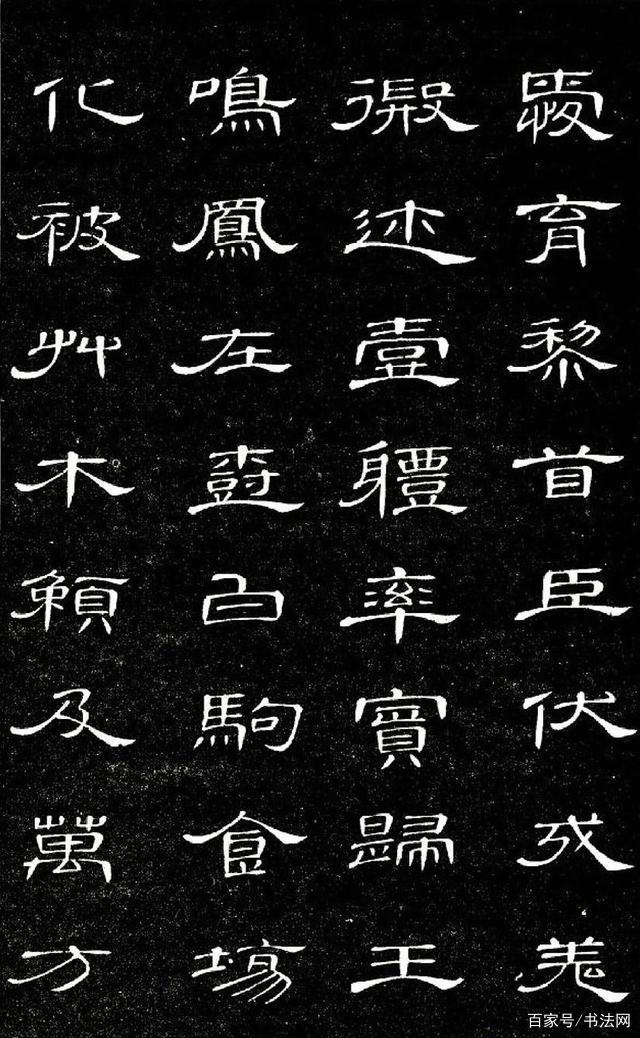 愛育黎首臣伏戎羌
徦迩壹軆率賓歸王
鳴鳳在樹白駒食場
化被艸木賴及萬方
百家号/书法网